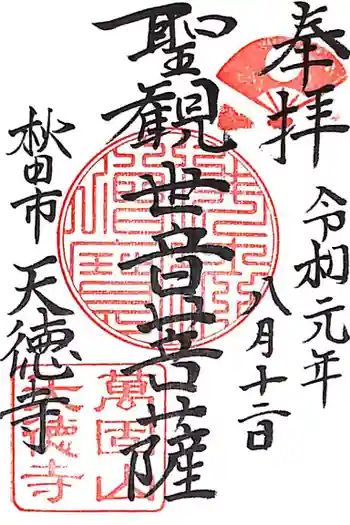 奉拝
令和元年
八月十二日
聖観世音菩薩
秋田市
天徳寺
萬固山
天徳寺